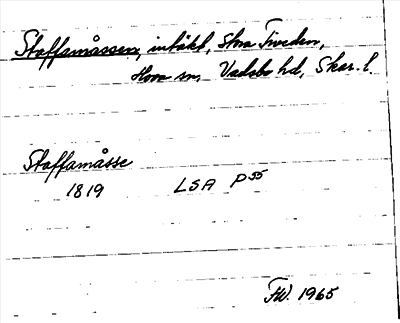 Staffamåssen, intäkt, Stora Tiveden,
Hova sn Vadsbo hd, Skar. l.
Staffamåsse
1819 LSA P55
FW. 1965